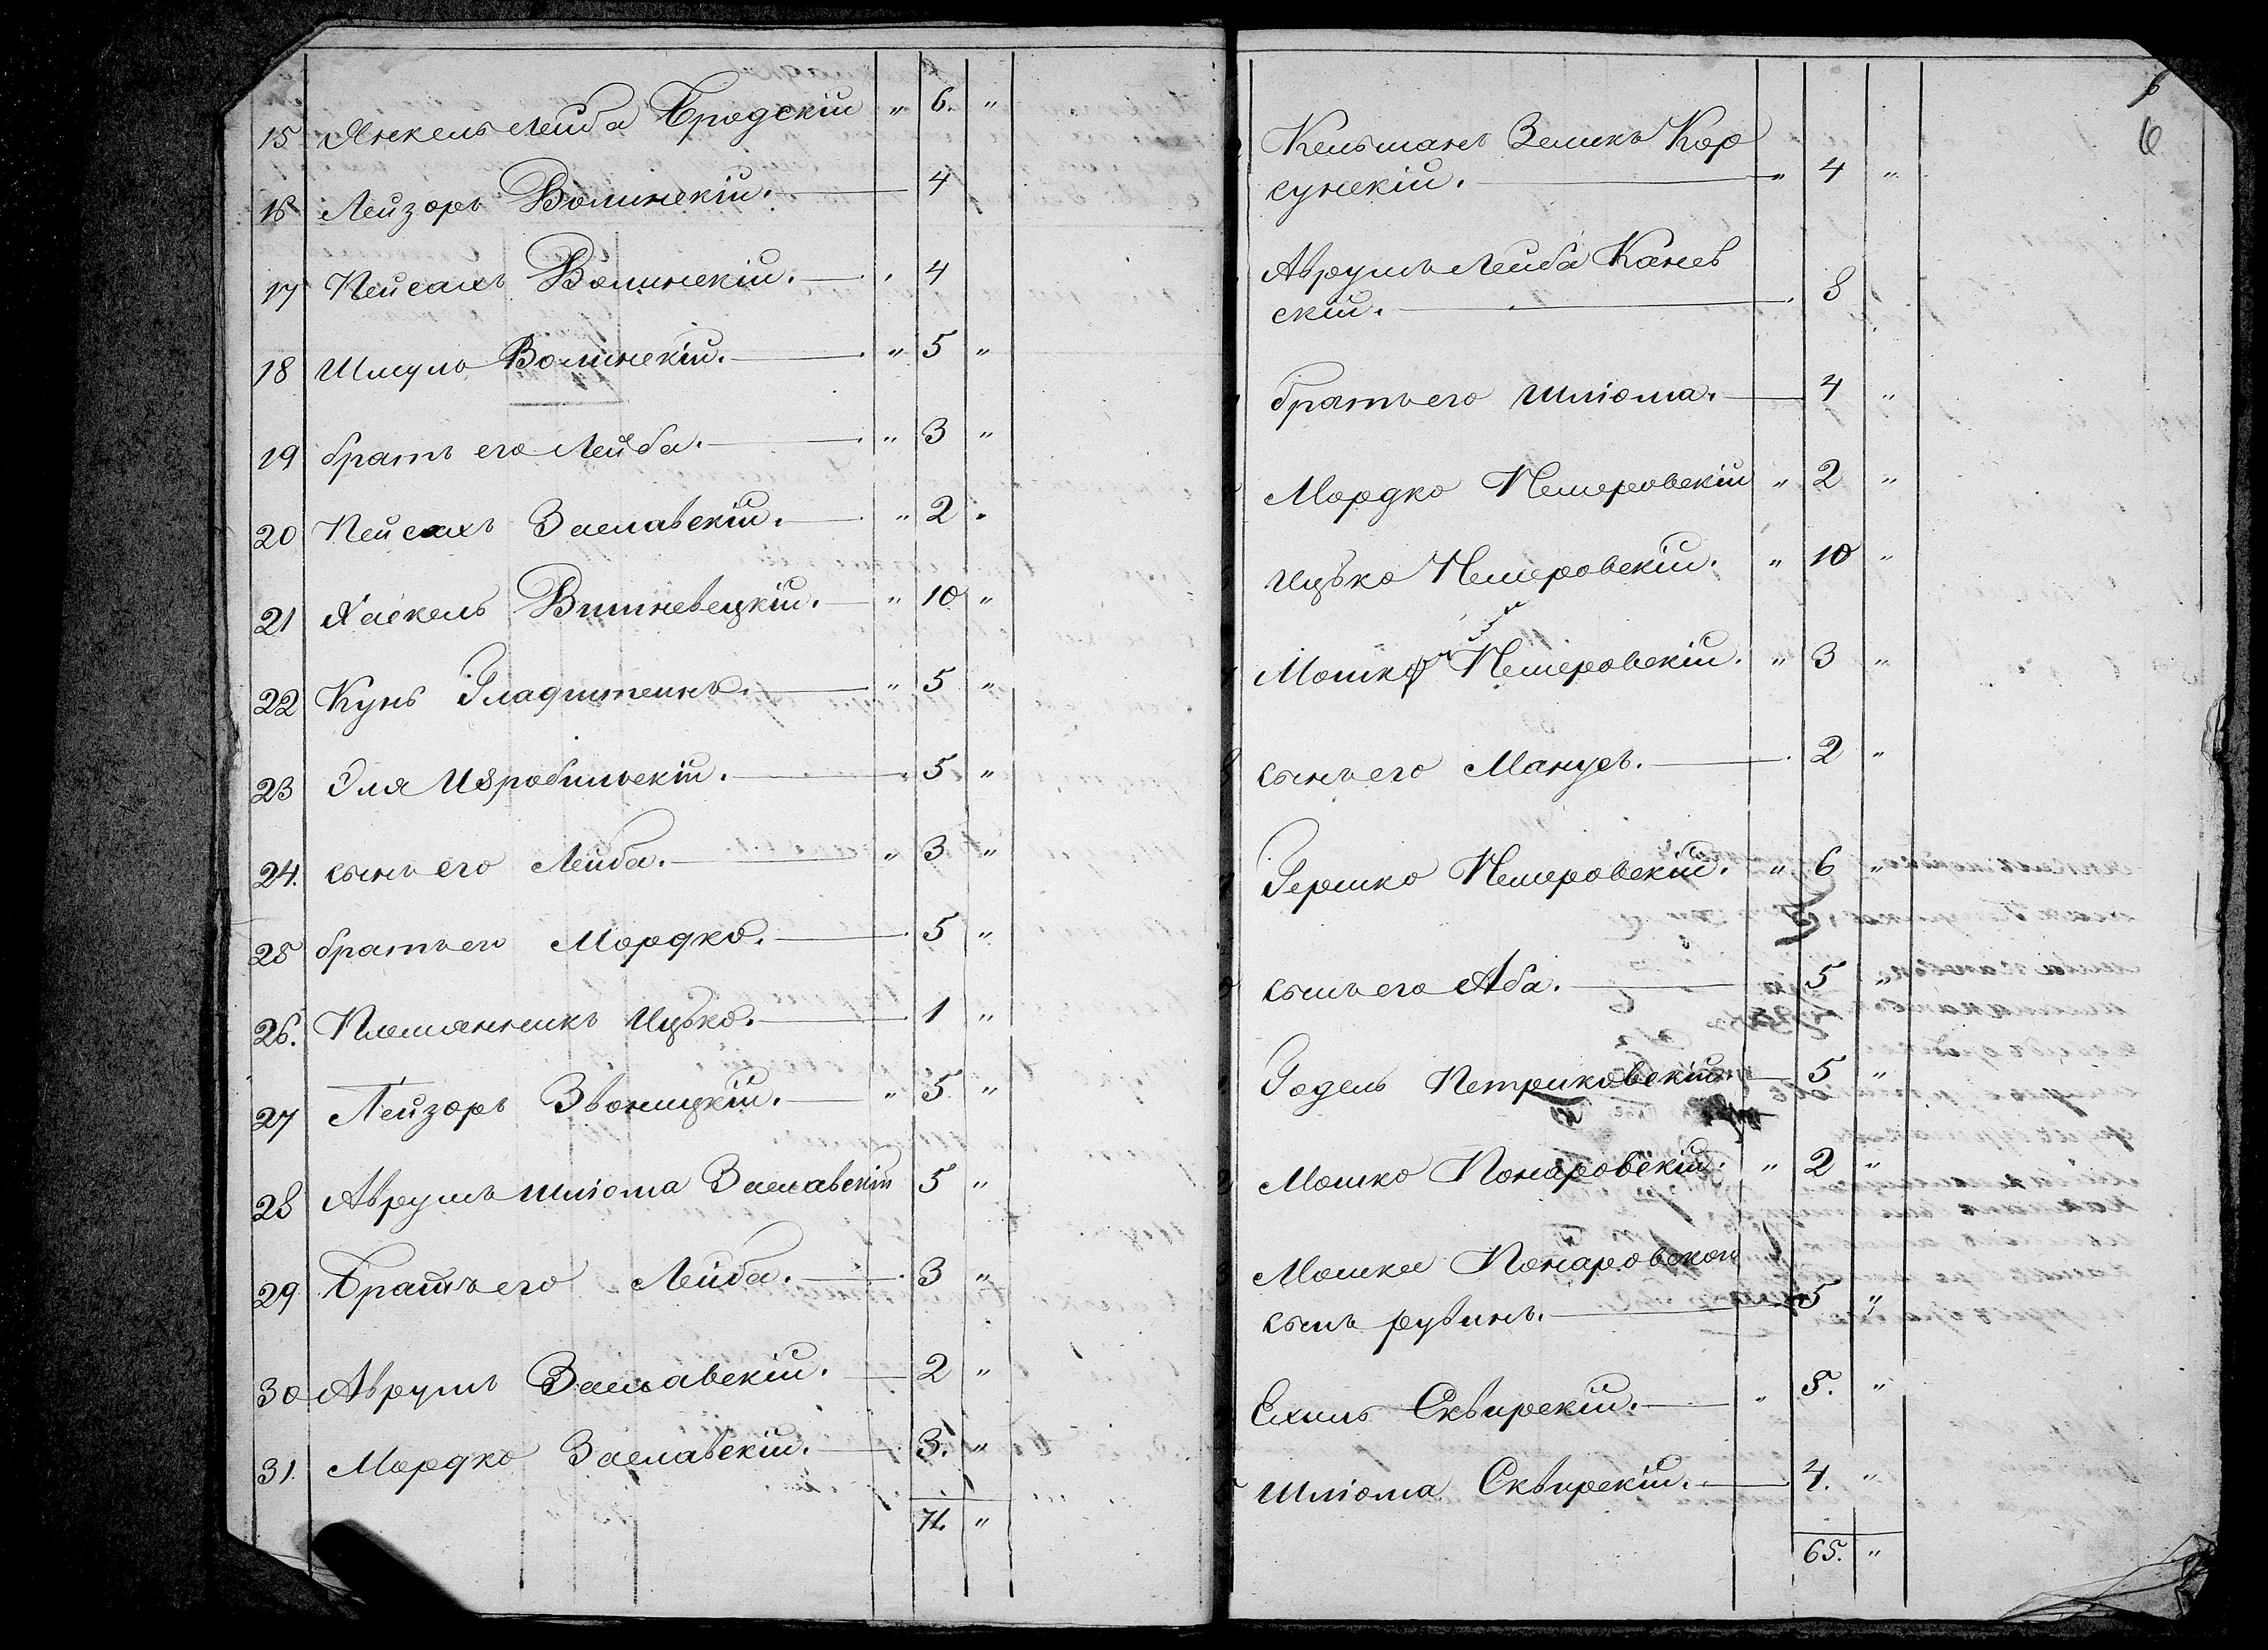 15 Янкель Лейба Бродскій " 6. "
16 Лейзоръ Волинскій. 4
17 Пейсахъ Волинскій. 4
18 Шмуль Волинскій. " 5 "
19 братъ его Лейба. " 3 "
20 Пейсахъ Заславскій. " 2 "
21 Хаскель Вишневецкій. " 10 "
22 Кунь Гладштейнъ. " 5 "
23 Эля Изробильскій. 5 "
24. сынъ его Лейба. " 3 "
25 братъ его Мордко. 5 "
26. Племянникъ Ицько. 1 "
27 Лейзоръ Звоницкій. " 5 "
28 Аврумъ Шліома Заславскій 5 "
29 Братъ его Лейба. 3 "
30 Аврумъ Заславскій. 2 "
31. Мордко Заславскій. 3. "
71. "
6
Кельманъ Зеликъ Кор
сунскій. " 4 "
Аврумъ Лейба Канев
скій. 8
братъ его Шліома. 4 "
Мордко Немеровскій " 2 "
Ицько Немеровскій. " 10 "
Мошко Немеровскій. " 3 "
сынъ его Манусъ. 2 "
Гершко Немеровскій. " 6 "
сынъ его Аба. 5 "
Годель Петриковскій. 5 "
Мошко Понаровскій. " 2 "
Мошки Понаровского
сынъ рувинъ. 5 "
Ехиль Сквирскій. " 5. "
Шліома Сквирскій. 4. "
65. "